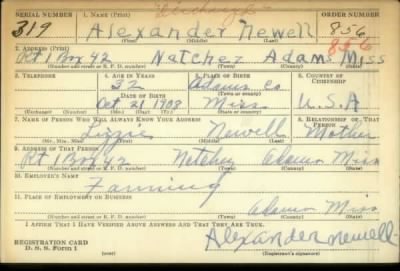 "Discharge"
SERIAL NUMBER 1. NAME (Print) ORDER NUMBER
319 Alexander Newell 856
(First) (Middle) (Last) 856
2. ADDRESS (Print)
Rt 1 Box 42 Natchez Adams Miss
(Number and street or R. F. D. number) (Town) (County) (State)
3. TELEPHONE 4. AGE IN YEARS 5. PLACE OF BIRTH 6. COUNTRY OF CITIZENSHIP
32 Adams Co
DATE OF BIRTH (Town or county)
Oct 21 1908 Miss U.S.A
(Exchange) (Number) (Mo.) (Day) (Yr.) (State or country)
7. NAME OF PERSON WHO WILL ALWAYS KNOW YOUR ADDRESS 8. RELATIONSHIP OF THAT PERSON
Lizzie Newell Mother
(Mr., Mrs., Miss) (First) (Middle) (Last)
9. ADDRESS OF THAT PERSON
Rt 1 Box 42 Natchez Adams Miss
(Number and street or R. F. D. number) (Town) (County) (State)
10. EMPLOYER'S NAME
Farming
11. PLACE OF EMPLOYMENT OR BUSINESS
Adams Miss
(Number and street or R. F. D. number) (Town) (County) (State)
I AFFIRM THAT I HAVE VERIFIED ABOVE ANSWERS AND THAT THEY ARE TRUE.
REGISTRATION CARD Alexander Newell
D. S. S. Form 1 (Registrant's signature)